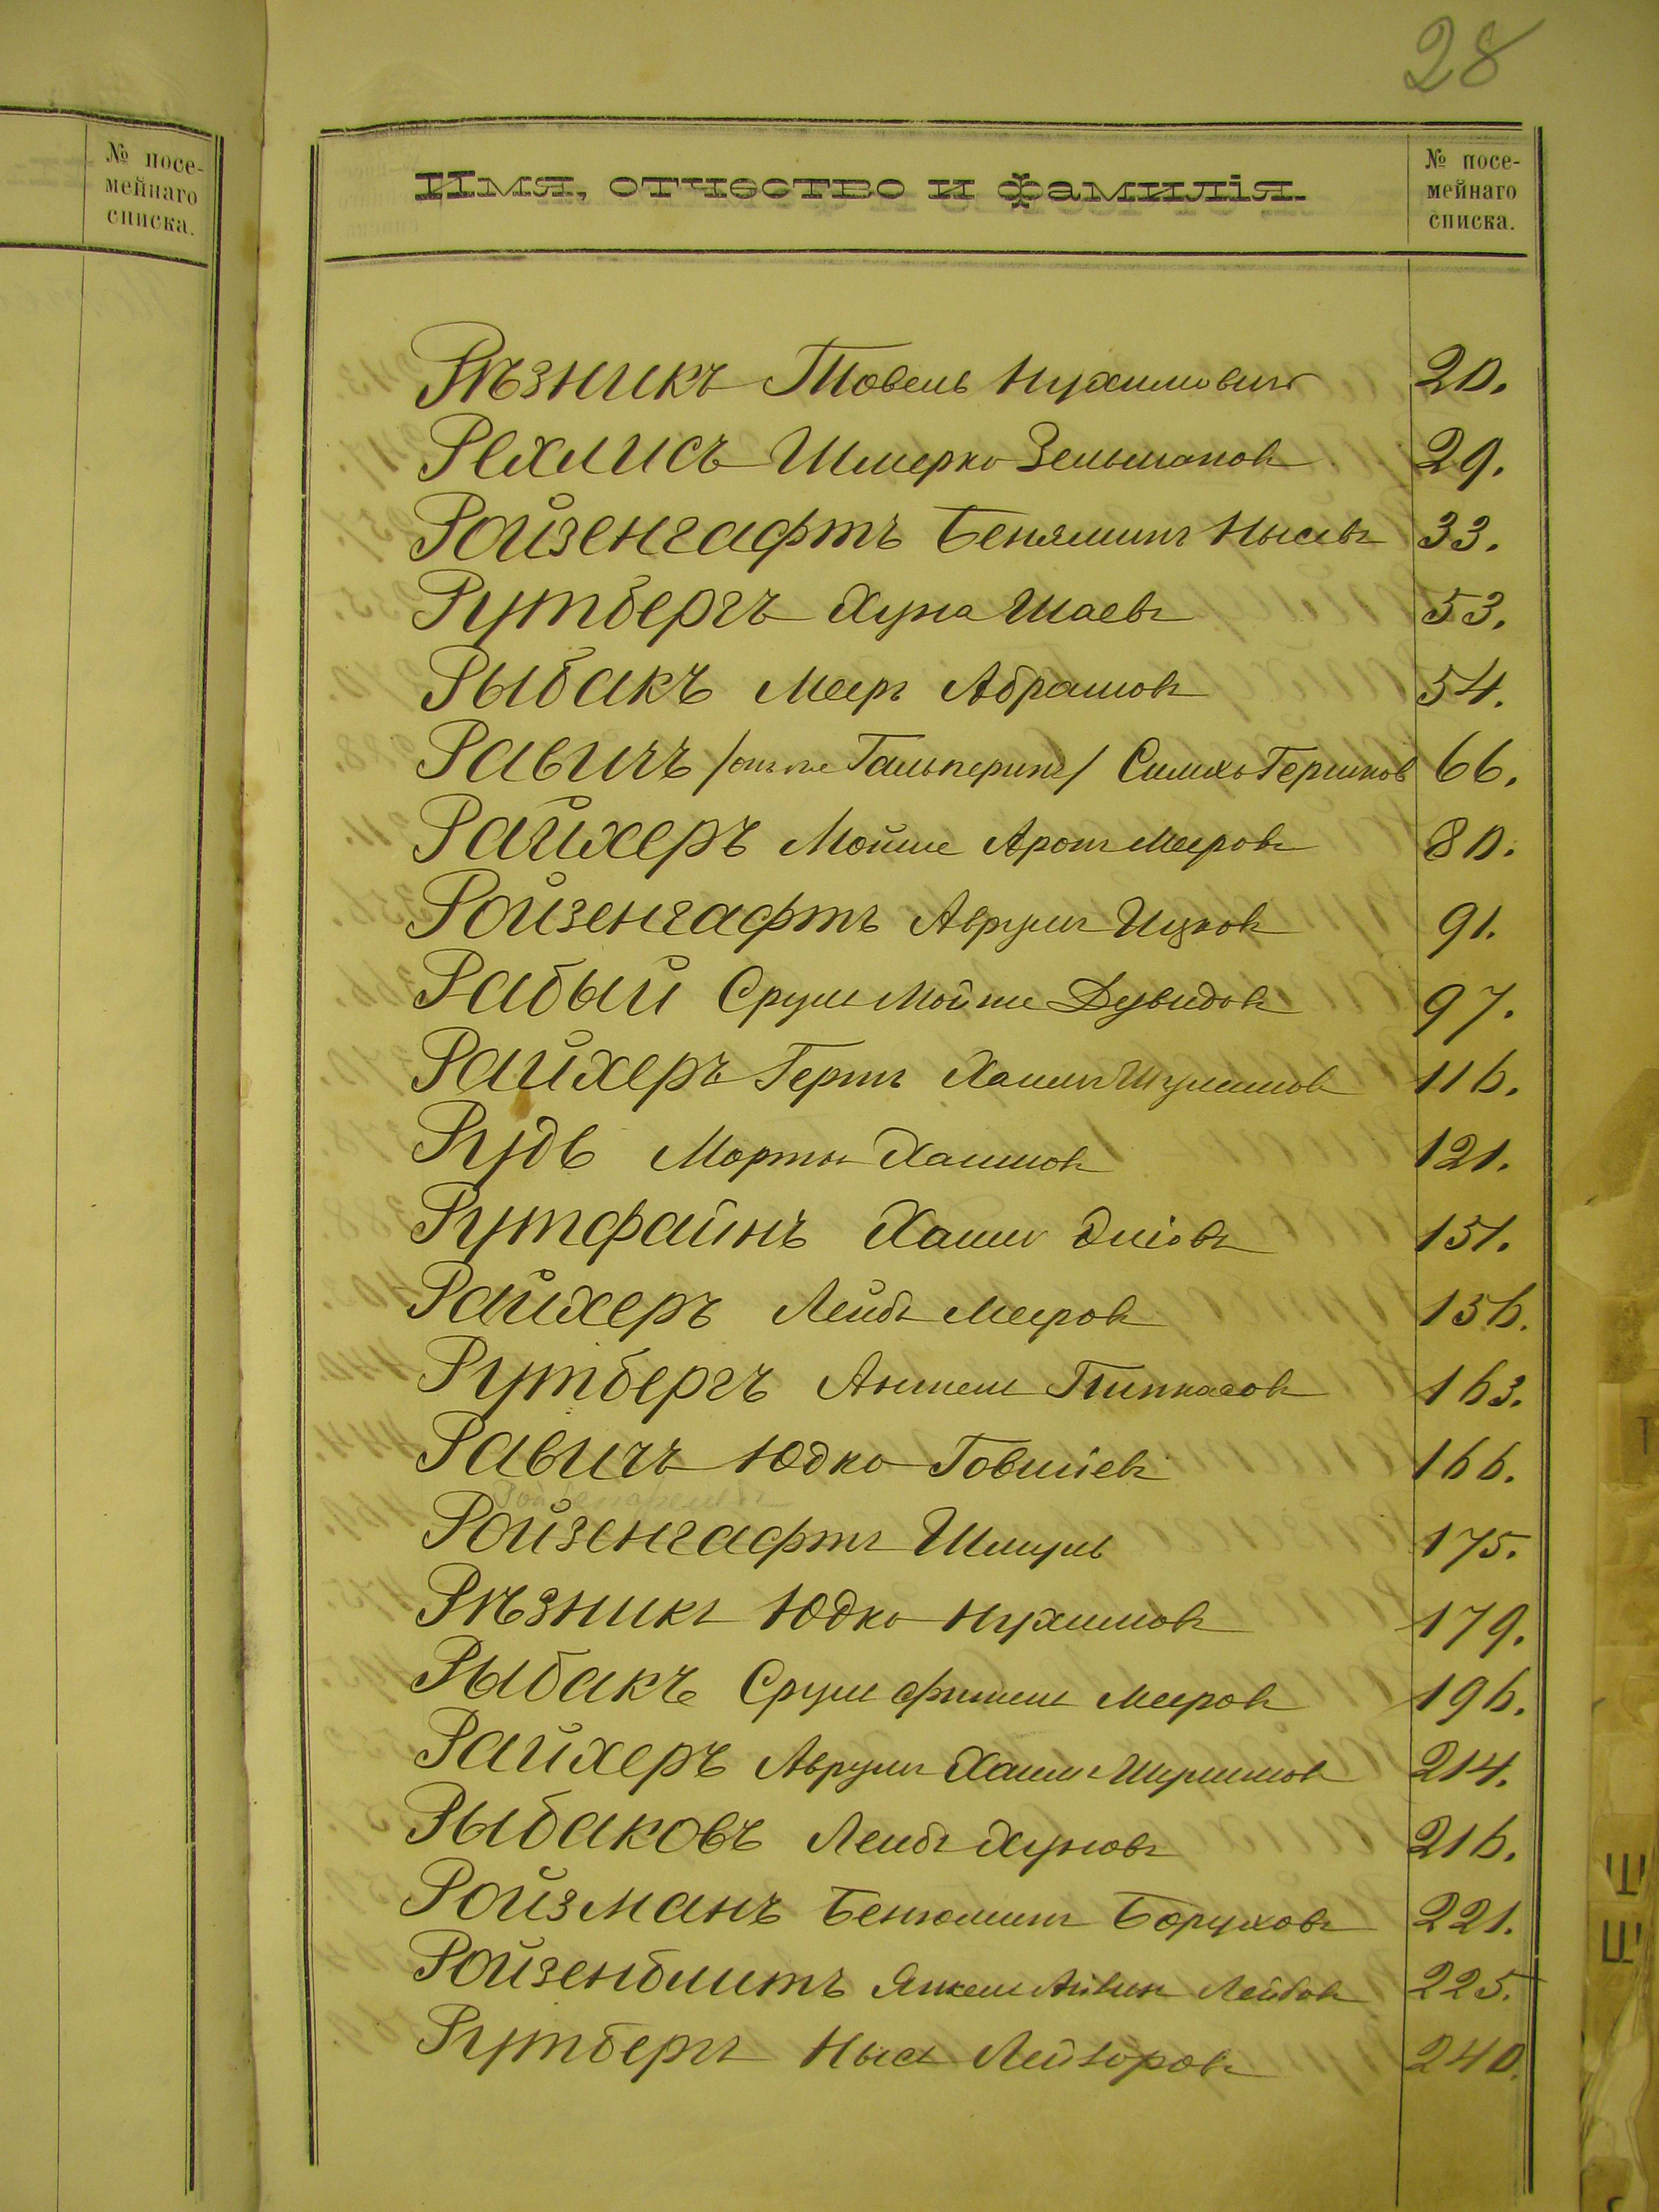 28
№ посе-
мейнаго
списка.
Имя, отчество и фамилія.
№ посе-
мейнаго
списка.
Рѣзникъ Товель Нухимовичъ 20.
Рехлисъ Шмерко Зельманов 29.
Ройзенгафтъ Беняминъ Нысовъ 33.
Рутбергъ Хуна Шаевъ 53.
Рыбакъ Меер Абрамовъ 54.
Равичъ /онъ же Гальперинъ/ Симхо Гершков 66.
Райхеръ Мойше Аронъ Мееровъ 80.
Ройзенгафтъ Аврумъ Ицковъ 91.
Рабый Срул Мойше Дувидовъ 97.
Райхеръ Гершъ Хаимъ Шулимовъ 116.
Рудь Хаимовъ 121.
Рутфайнъ Хаим 151.
Райхеръ Лейбъ Мееровъ 156.
Рутбергъ Аншель Пинкасовъ 163.
Равичъ Юдко Говшіевъ 166.
Ройзенгафтъ Шмуль 175.
Рѣзникъ Юдко Нухимовъ 179.
Рыбакъ Срул Фишель Мееров 196.
Райхеръ Аврумъ Хаим Шулимовъ 214.
Рыбаковъ Лейбъ Хуновъ 216.
Ройзманъ Бенюминъ Боруховъ 221.
Ройзенблитъ Янкель Лейбовъ 225.
Рутбергъ Нысъ Лейзоровъ 240.